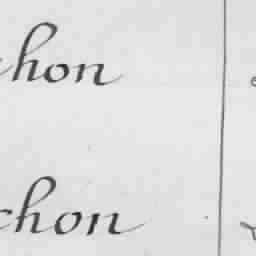 chon
chon